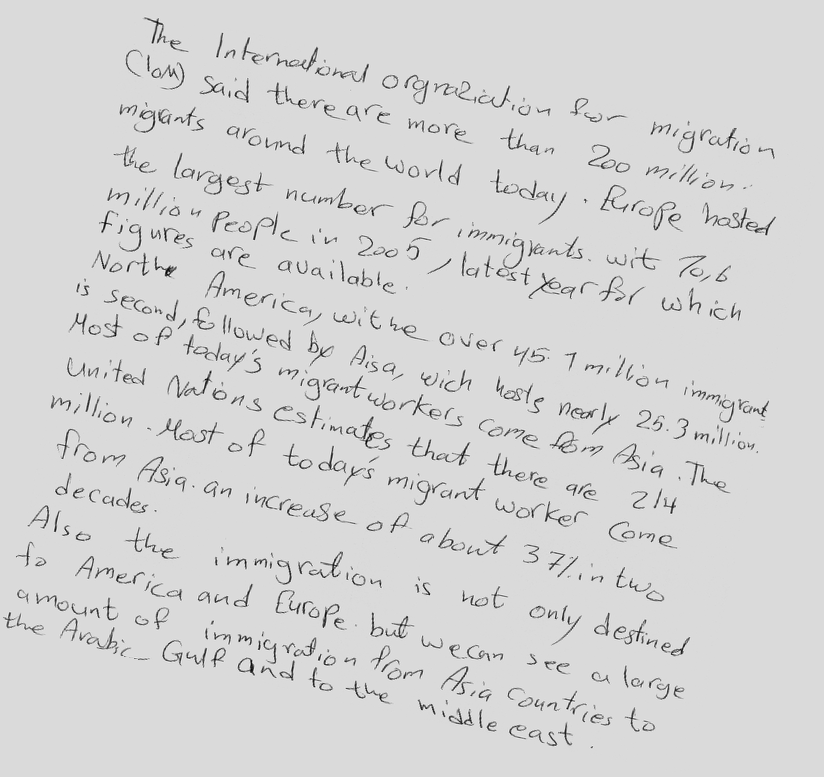 The International orgnaziation for migration
(IoM) said there are more than 200 million.
migrants around the world today. Europe hosted
the largest number for immigrants. wit 70,6
million People in 2005, latest year for which
figures are available.
North America, withe over 45.1 million immigrant
is second, followed by Aisa, wich hosts nearly 25.3 million.
Most of today's migrant workers come from Asia. The
United Nations estimates that there are 214
million. Most of today's migrant worker Come
from Asia. an increase of about 37% in two
decades.
Also the immigration is not only destined
to America and Europe. but we can see a large
amount of immigration from Asia Countries to
the Arabic_ Gulf and to the middle east.